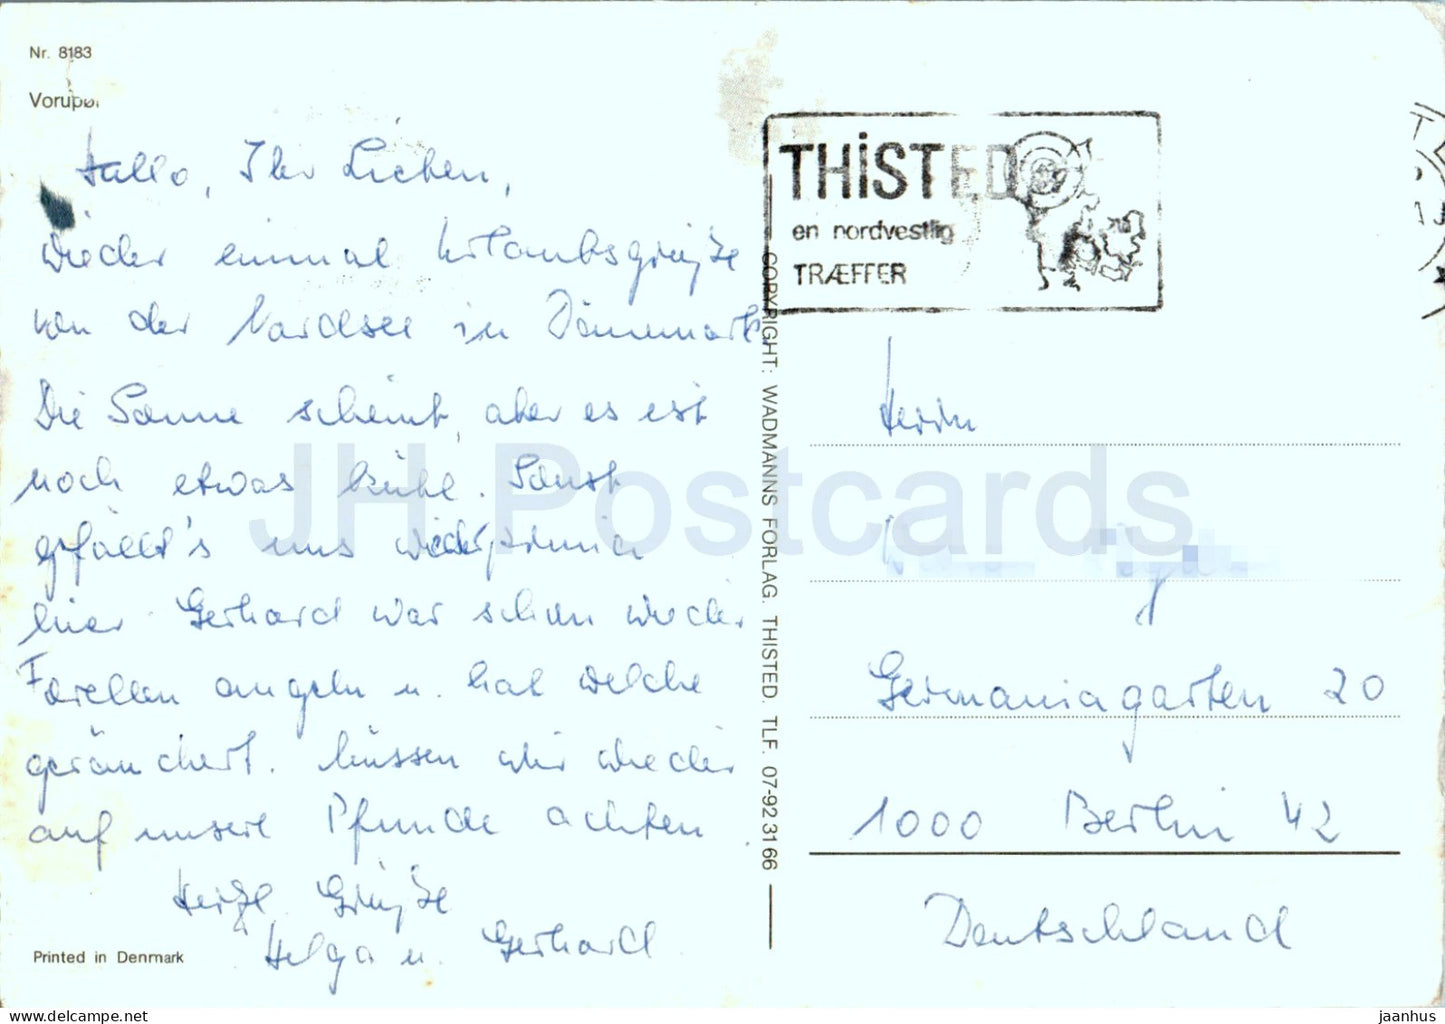 Nr. 8183
Vorupør
Hallo, Ihr Lieben,
wieder einmal Urlaubsgrüße
von der Nordsee in Dänemark.
Die Sonne scheint, aber es ist
noch etwas kühl. Sonst
gefällt's uns wieder prima
hier. Gerhard war schon wieder
Forellen angeln u. hat welche
geräuchert. Müssen wir wieder
auf unsere Pfunde achten.
Herzl. Grüße
Helga u. Gerhard
Printed in Denmark
COPYRIGHT: WADMANNS FORLAG. THISTED. TLF. 07-923166
THiSTED
en nordvestlig
TRÆFFER
Herrn
Germaniagarten 20
1000 Berlin 42
Deutschland
JH Postcards
www.delcampe.net
jaanhus